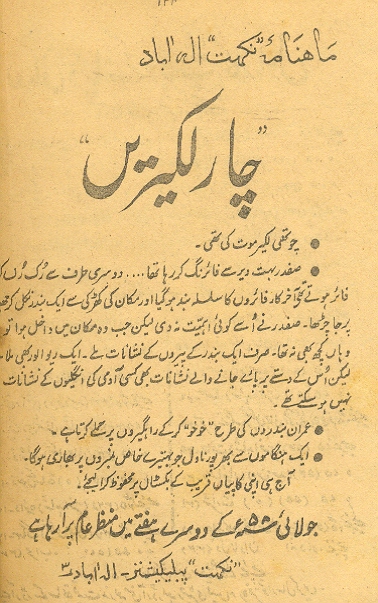 ۱۲۸
ماہنامۂ "نکہت" الہ اباد
"چار لکیریں"
● چوتھی لکیر موت کی تھی۔
● صفدر بہت دیر سے فائرنگ کر رہا تھا.... دوسری طرف سے رُک رُک ک
فائر ہوتے تھے آخر کار فائروں کا سلسلہ بند ہو گیا اور مکان کی کھڑکی سے ایک بندر نکل کر چھ
پر جا چڑھا۔ صفدر نے اُسے کوئی اہمیّت نہ دی لیکن جب وہ مکان میں داخل ہوا تو
وہاں کچھ بھی نہ تھا۔ صرف ایک بندر کے پیروں کے نشانات ملے۔ ایک ریوالور بھی ملا۔
لیکن اُس کے دستے پر پائے جانے والے نشانات بھی کسی آدمی کی انگلیوں کے نشانات
نہیں ہو سکتے تھے۔
● عمران بندروں کی طرح "خوخو" کر کے راہگیروں پر حملے کرتا ہے۔
● ایک ہنگاموں سے بھرپور ناول جو بہتیرے خاص نمبروں پر بھاری ہوگا۔
آج ہی اپنی کاپیاں قریب کے بکسٹال پر محفوظ کرالیجئے۔
جولائی ۵۸ء کے دوسرے ہفتے میں منظر عام پر آرہا ہے
"نکہت" پبلیکیشنز۔ الہ اباد ۳